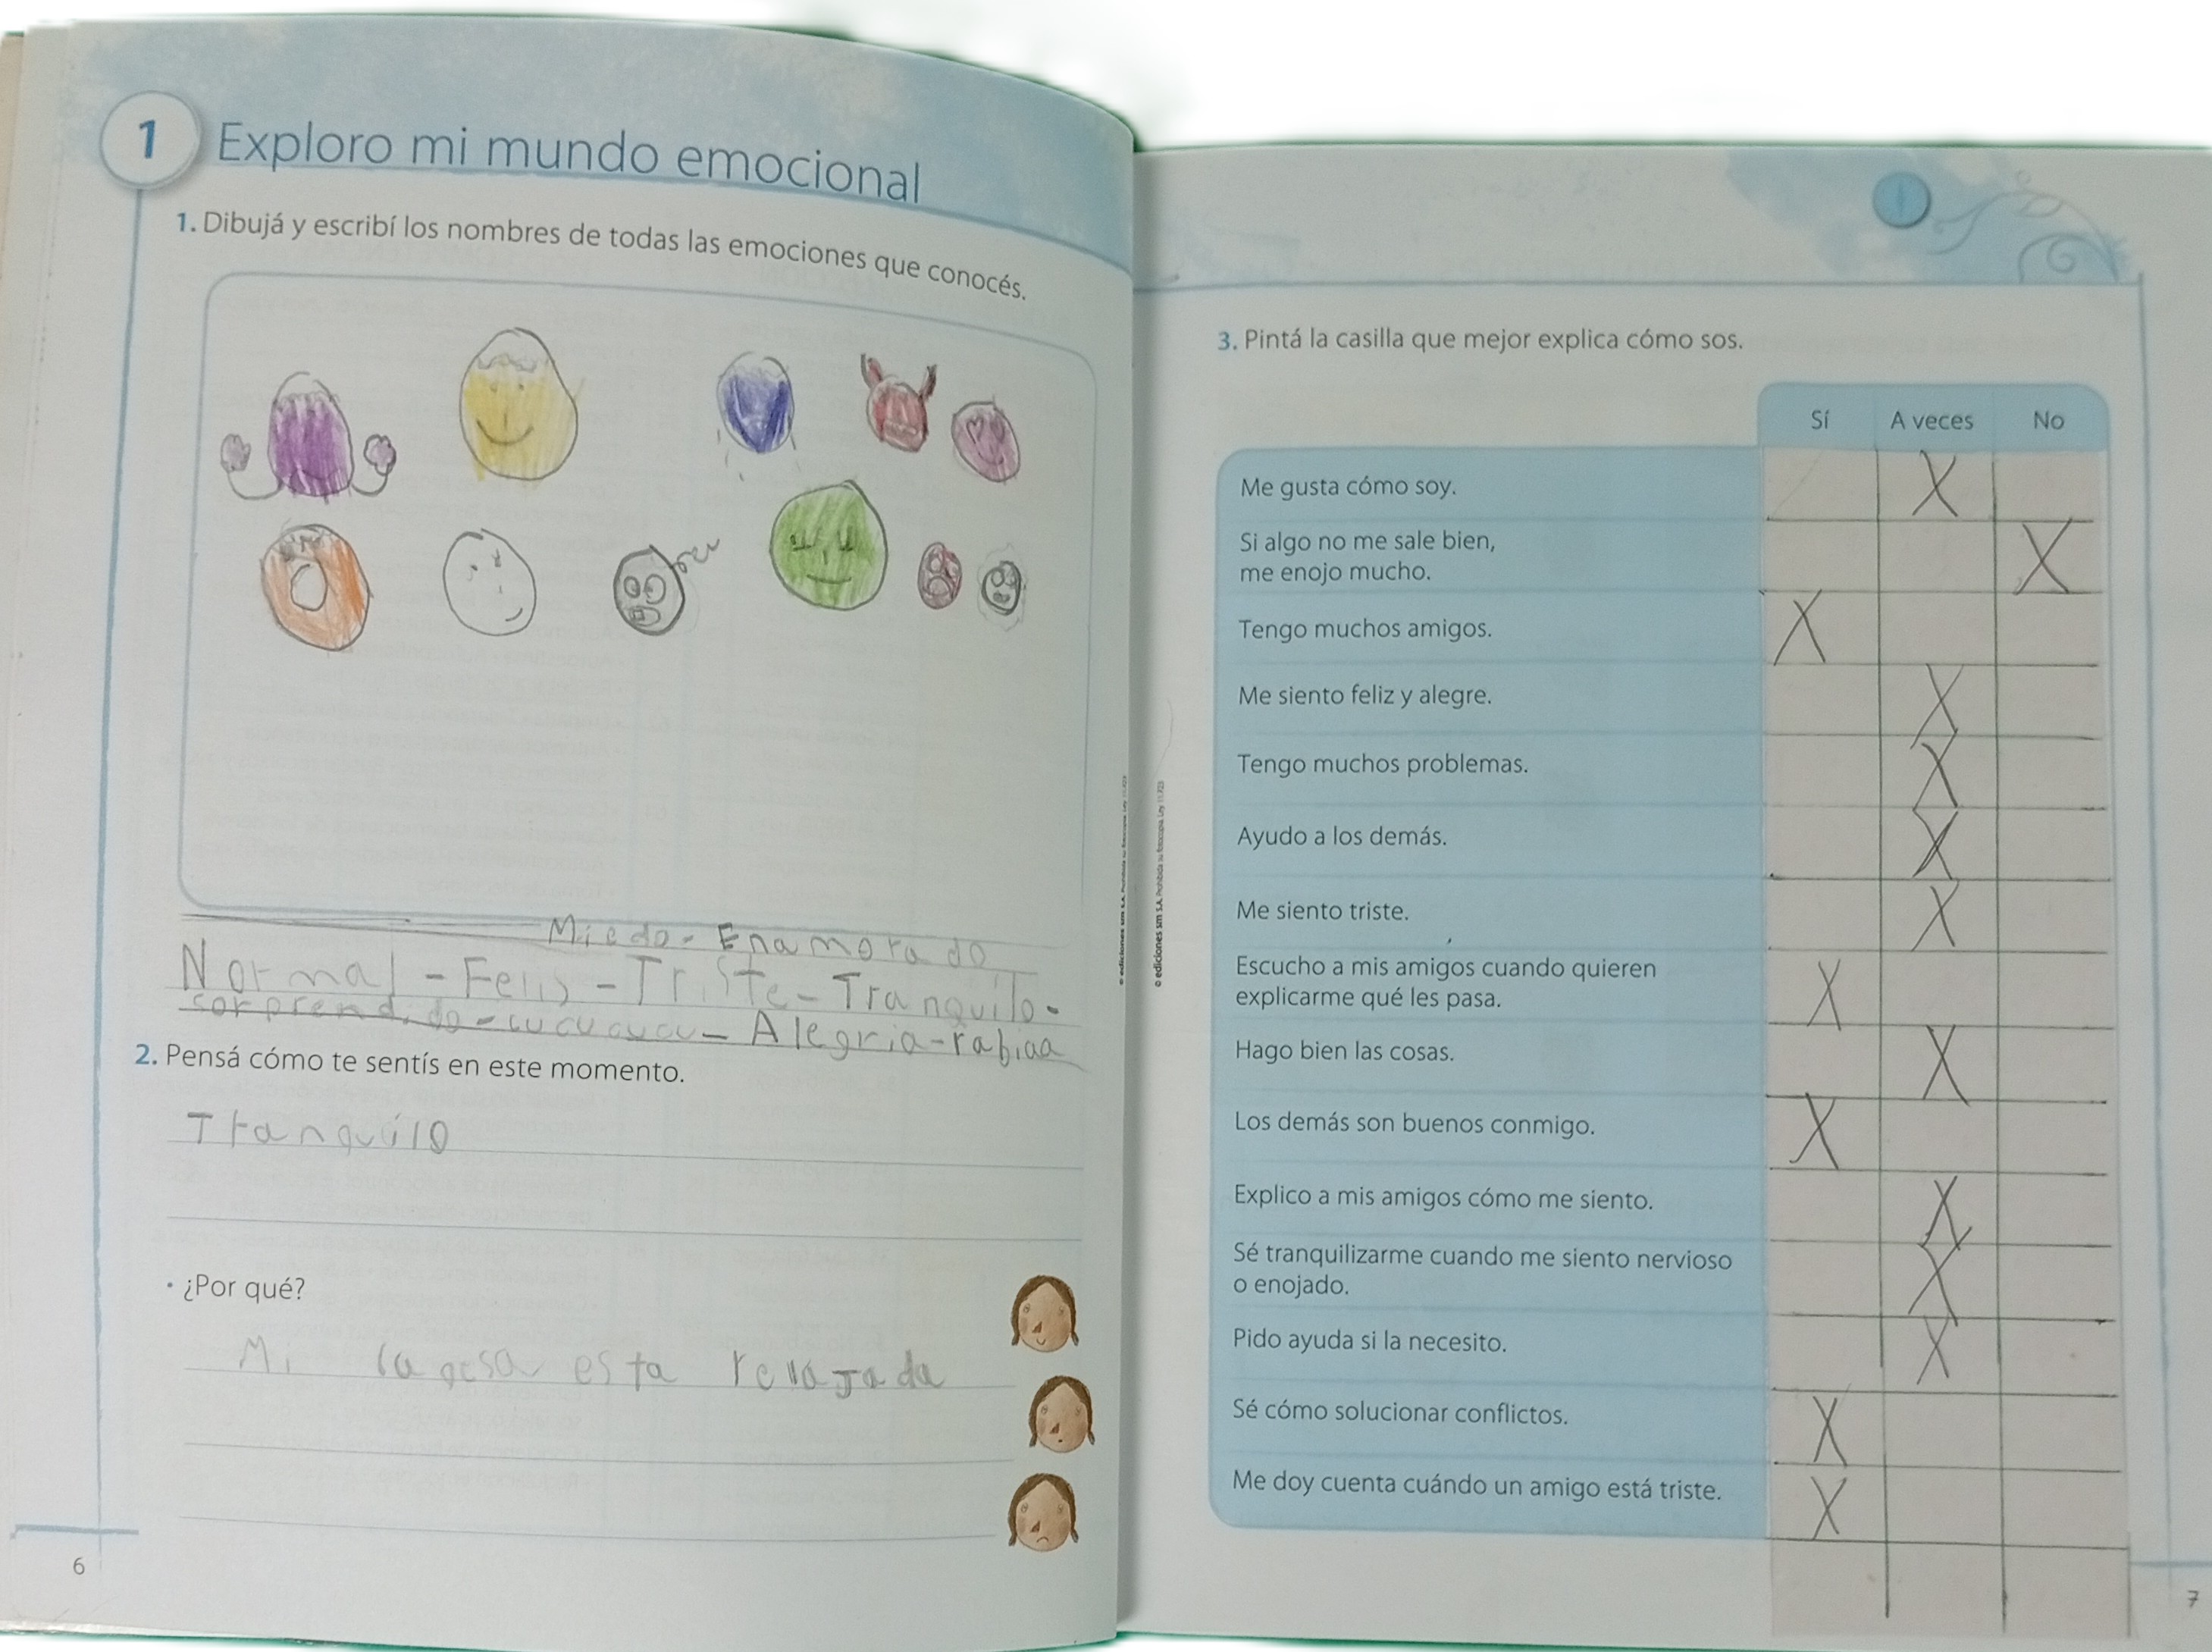 1 Exploro mi mundo emocional
1. Dibujá y escribí los nombres de todas las emociones que conocés.
Miedo - Enamorado
Normal - Felis - Triste - Tranquilo -
sorprendido - cucucucu - Alegria - rabiaa
2. Pensá cómo te sentís en este momento.
Tranquilo
• ¿Por qué?
Mi esta
6
© ediciones sm S.A. Prohibida su fotocopia. Ley 11.723
3. Pintá la casilla que mejor explica cómo sos.
Sí A veces No
Me gusta cómo soy. X
Si algo no me sale bien,
me enojo mucho. X
Tengo muchos amigos. X
Me siento feliz y alegre. X
Tengo muchos problemas. X
Ayudo a los demás. X
Me siento triste. X
Escucho a mis amigos cuando quieren
explicarme qué les pasa. X
Hago bien las cosas. X
Los demás son buenos conmigo. X
Explico a mis amigos cómo me siento. X
Sé tranquilizarme cuando me siento nervioso
o enojado. X
Pido ayuda si la necesito. X
Sé cómo solucionar conflictos. X
Me doy cuenta cuándo un amigo está triste. X
7